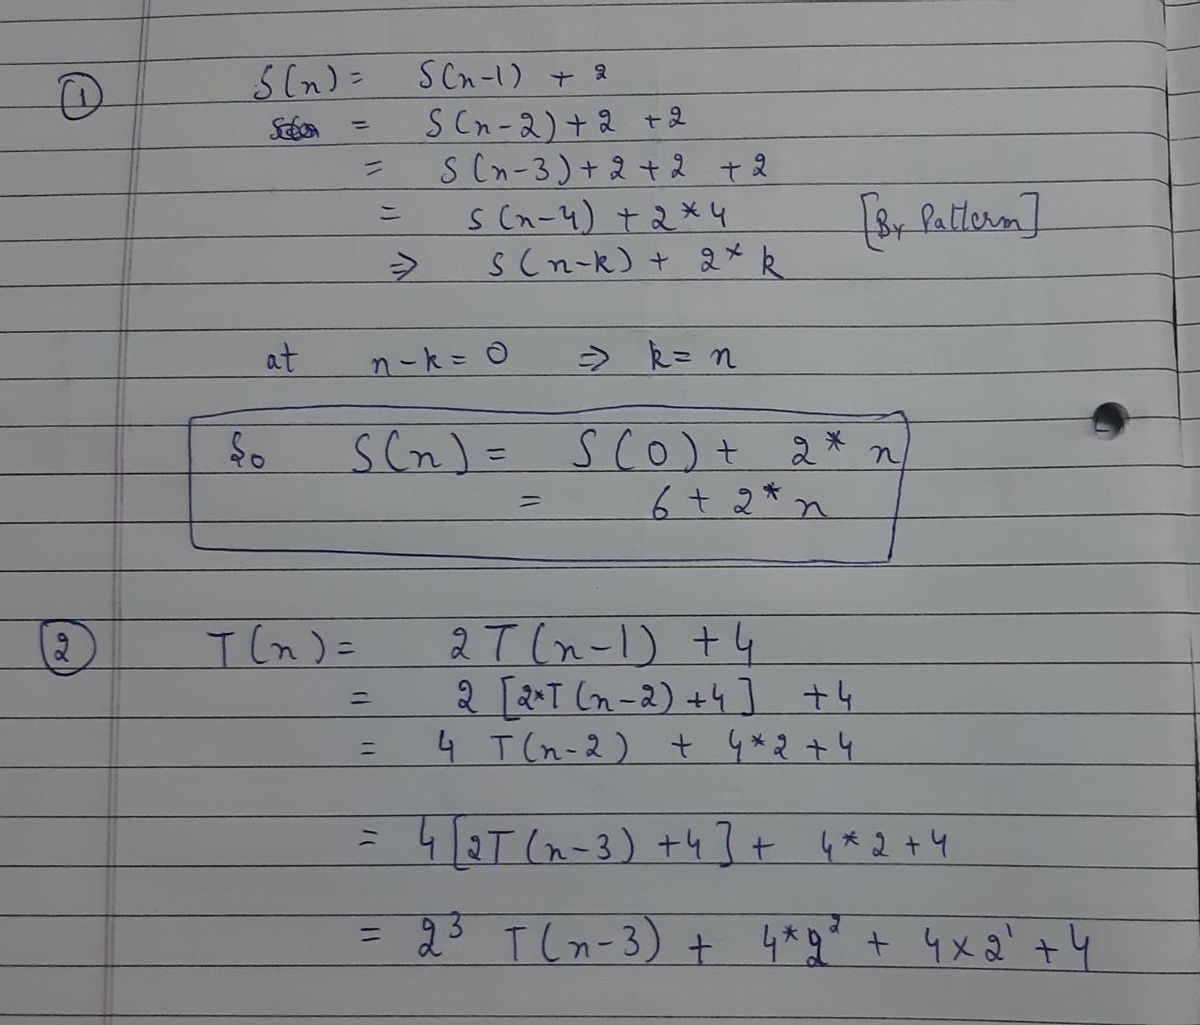 ① S(n) = S(n-1) + 2
= S(n-2) + 2 + 2
= S(n-3) + 2 + 2 + 2
= S(n-4) + 2 * 4 [By Pattern]
⇒ S(n-k) + 2 * k
at n-k = 0 ⇒ k = n
So S(n) = S(0) + 2 * n
= 6 + 2 * n
② T(n) = 2T(n-1) + 4
= 2 [2*T(n-2) + 4] + 4
= 4 T(n-2) + 4*2 + 4
= 4[2T(n-3) + 4] + 4*2 + 4
= 2³ T(n-3) + 4*2² + 4×2¹ + 4